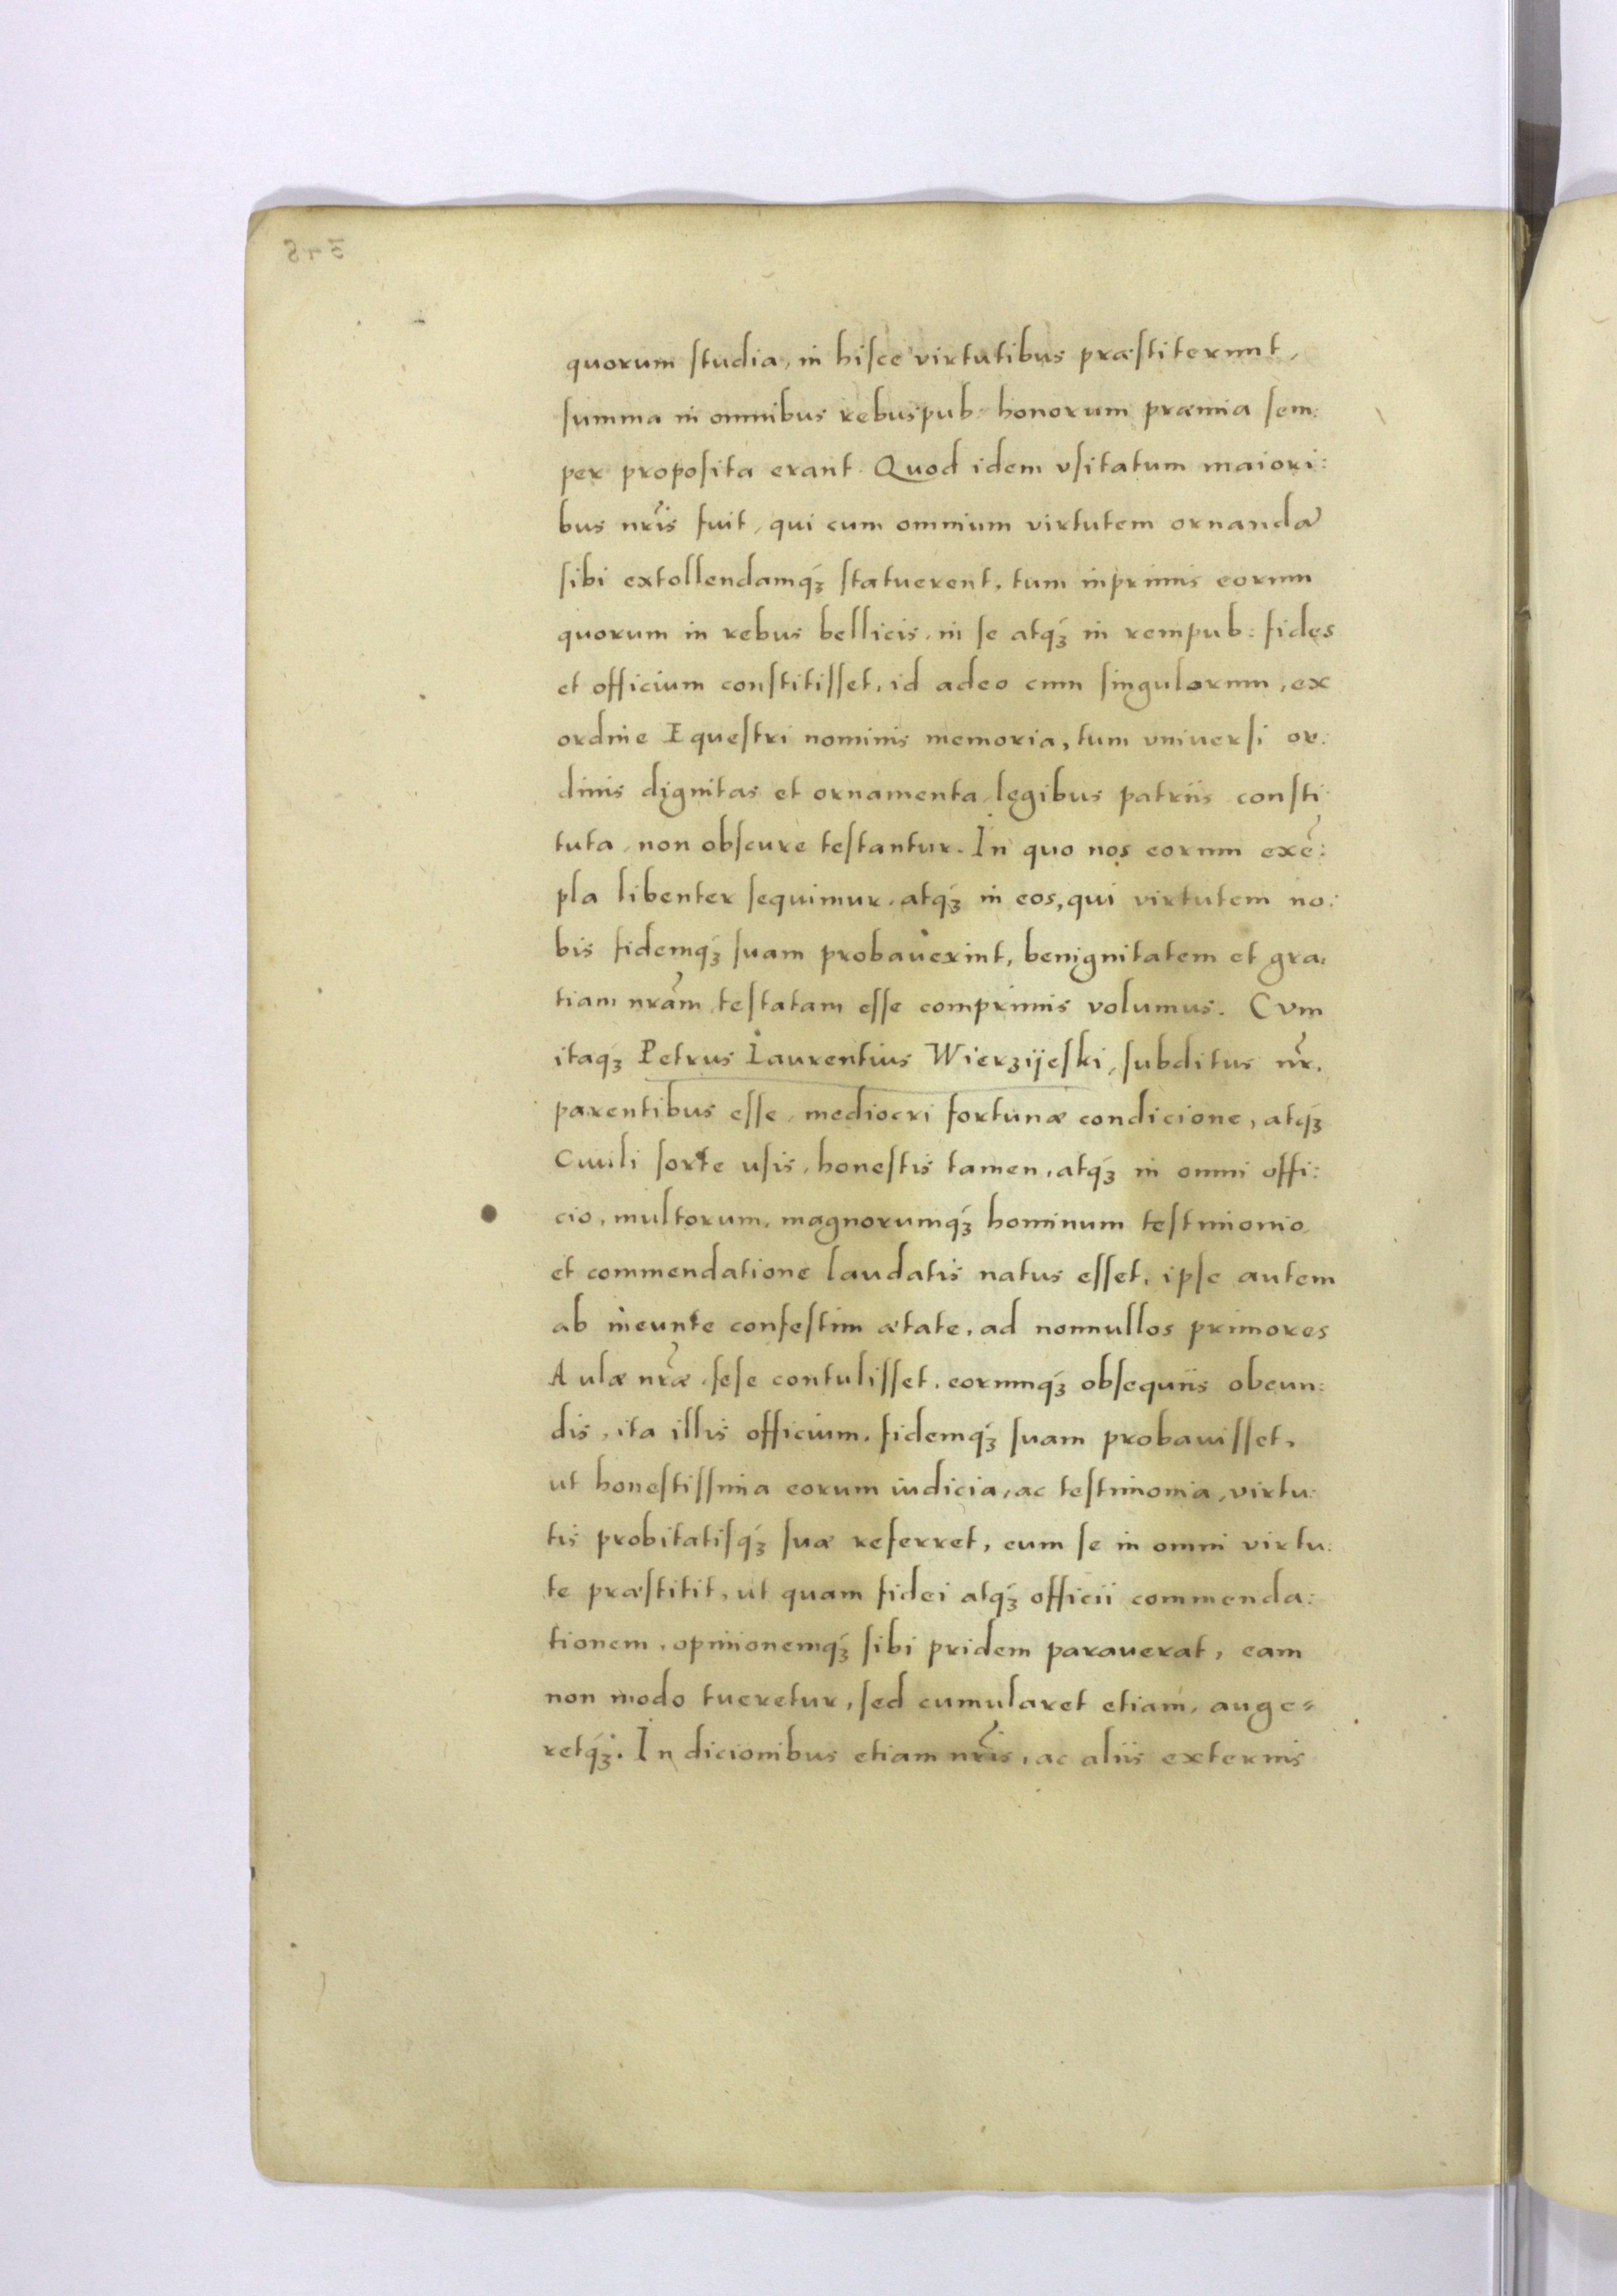 quorum ſtudia, in hiſce virtutibus præſtiterunt,
ſumma in omnibus rebuspub: honorum præmia ſem:
per propoſita erant. Quod idem vſitatum maiori:
bus nr̃is fuit, qui cum omnium virtutem ornandã
ſibi extollendamq́ꝫ ſtatuerent, tum inprimis eorum
quorum in rebus bellicis, in ſe atq́ꝫ in rempub: fides
et officium conſtitiſſet, id adeo cum ſingulorum, ex
ordine Equeſtri nominis memoria, tum vniuerſi or:
dinis dignitas et ornamenta, legibus patriis conſti
tuta, non obſcure teſtantur. In quo nos eorum exẽ:
pla libenter ſequimur, atq́ꝫ in eos, qui virtutem no:
bis fidemq́ꝫ ſuam probauerint, benignitatem et gra:
tiam nr̃am teſtatam eſſe comprimis volumus. Cvm
itaq́ꝫ Petrus Laurentius Wierzijeſki, ſubditus nr̃.
parentibus eſſe, mediocri fortunæ condicione, atq́ꝫ
Ciuili ſorte uſis, honeſtis tamen, atq́ꝫ in omni offi:
cio, multorum, magnorumq́ꝫ hominum teſtimonio
et commendatione laudatis natus eſſet, ipſe autem
ab ineunte confeſtim ætate, ad nonnullos primores
Aulæ nr̃æ, ſeſe contuliſſet, eorumq́ꝫ obſequiis obeun:
dis, ita illis officium, fidemq́ꝫ ſuam probauiſſet,
ut honeſtiſſima eorum iudicia, ac teſtimonia, virtu:
tis probitatiſq́ꝫ ſuæ referret, cum ſe in omni virtu:
te præſtitit, ut quam fidei atq́ꝫ officii commenda:
tionem, opinionemq́ꝫ ſibi pridem parauerat, eam
non modo tueretur, ſed cumularet etiam, auge=
retq́ꝫ. In dicionibus etiam nr̃is, ac aliis externis